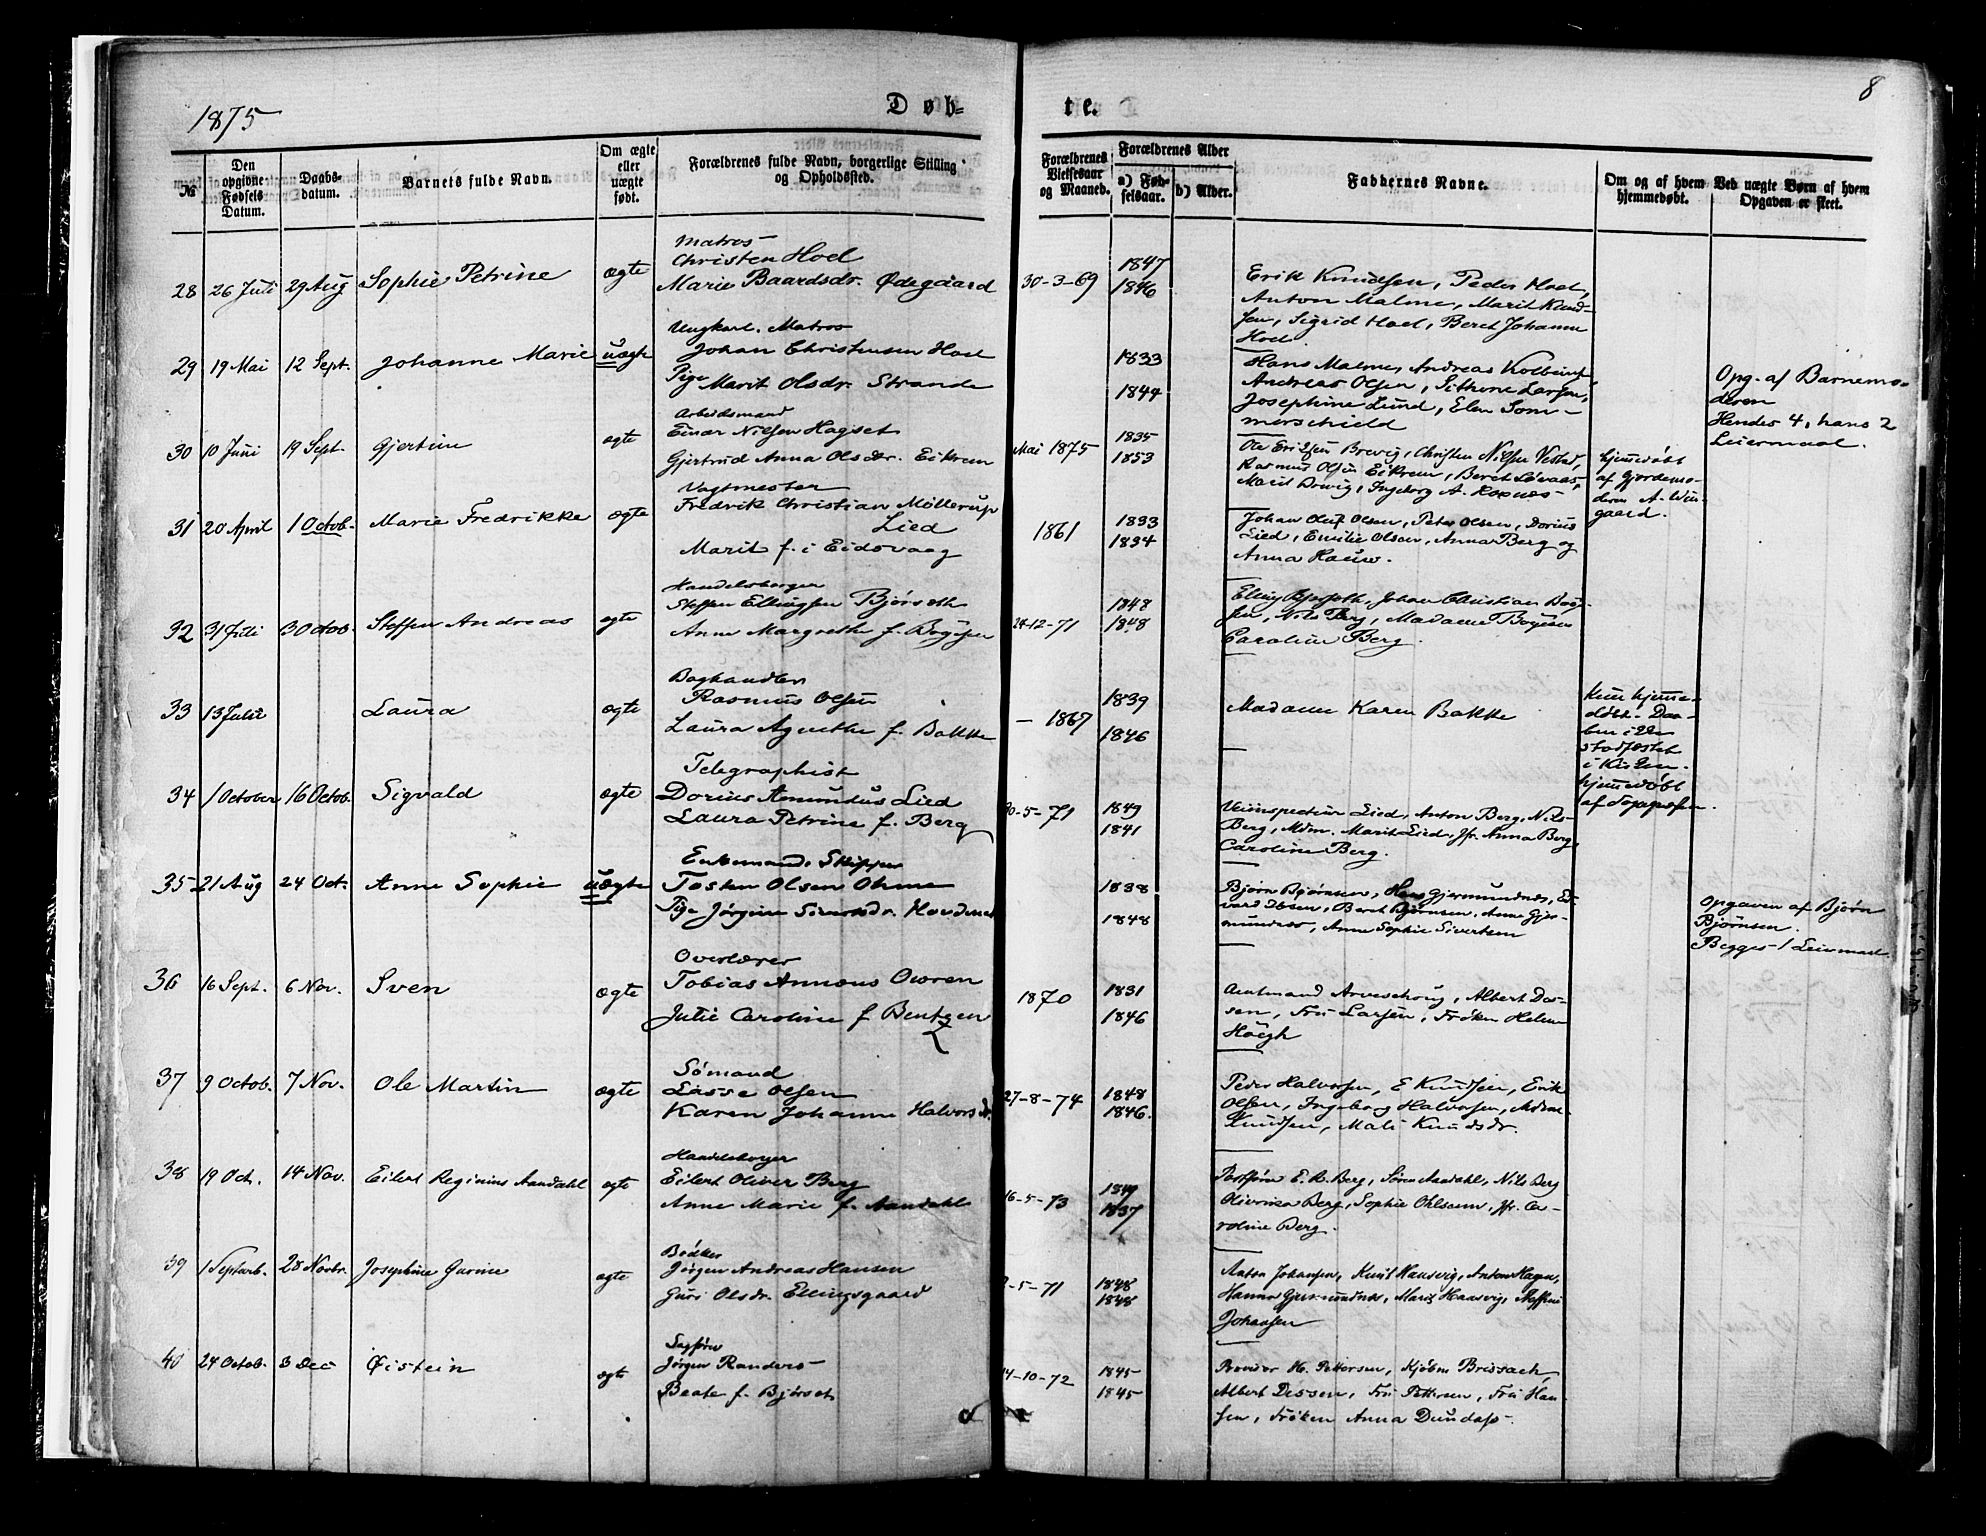 1875
Døb-
te.
8
№
Den opgivne Fødsels Datum.
Daabs-datum.
Barnets fulde Navn.
Om ægte eller uægte født.
Forældrenes fulde Navn, borgerlige Stilling og Opholdssted.
Forældrenes Vielsesaar og Maaned.
Forældrenes Alder
a) Fød-selsaar.
b) Alder.
Faddernes Navne.
Om og af hvem hjemmedøbt.
Ved uægte Børn af hvem Opgaven er skeet.
28 26 Juli 29 Aug Sophie Petrine ægte
Matros
Christen Hoel
Marie Baardsdr. Ødegaard
30-3-69
1847
1846
Erik Knudsen, Peder Hoel,
Anton Malme, Marit Knud-
sen, Sigrid Hoel, Beret Johanne
Hoel
29 19 Mai 12 Sept. Johanne Marie uægte
Ungkarl. Matros
Johan Christensen Hoel
Pige Marit Olsdr. Strande
1833
1844
Hans Malme, Andreas
Andreas Olsen, Larsen,
Josephine Lund, Elen Som-
merschield
Opg. af Barnemo-
deren
Hendes 4, hans 2
Leiermaal.
30 10 Juni 19 Sept. Gjertine ægte
Arbeidsmand
Einar Nilsen Hagset
Gjertrud Anna Olsdr. Eikrem
Mai 1875
1835
1853
Ole Brevig, Christen Nilsen
Rasmus Olsen Eikrem, Beret
Marit Brevig, Ingeborg A.
hjemmedøbt
af Gjordemo-
deren A. Win-
gaard.
31 20 April 1 Octob. Marie Fredrikke ægte
Vagtmester
Fredrik Christian Möllerup
Lied
Marit f. i Eidsvaag
1861
1833
1834
Johan Oluf Olsen, Peter Olsen, Dorius
Lied, Emilie Olsen, Anna Berg og
Anna
32 31 Juli 3 Octob. Steffen Andreas ægte
Handelsborger
Steffen Ellingsen Bjørseth
Anne Margrethe f. Boysen
24-12-71
1848
1848
Elling Bjørseth, Johan Christian Boy-
sen, Nils Berg, Madame Boysen
Caroline Berg.
33 13 Juli Laura ægte
Baghandler
Rasmus Olsen
Laura Agnethe f. Bakke
- 1867
1839
1846
Madame Karen Bakke
Kun hjemme-
døbt. Daa-
ben
stadfæstet
i Kirken.
34 1 October 16 Octob. Sigvald ægte
Telegraphist
Dorius Amundus Lied
Laura Petrine f. Berg
0-5-71
1849
1841
Lied, Anton Berg, Nils
Berg, Mdm. Marit Lied, Jfr. Anna Berg,
Caroline Berg.
hjemmedøbt
af
35 21 Aug 24 Oct. Anne Sophie uægte
Enkemand. Skipper
Tosten Olsen
Pige Jørgine Simonsdr.
1838
1848
Bjørn Bjørnsen, Hans Gjermundnes, Ed-
vard Ibsen, Beret Bjørnsen, Anne Gjer-
mundnes, Anne Sophie Sivertsen
Opgaven af Bjørn
Bjørnsen.
Begges 1 Leiermaal
36 16 Sept. 6 Nov. Sven ægte
Overlærer
Tobias Owren
Julie Caroline f. Bentzen
1870
1831
1846
Amtmand Albert Des-
sen, Fru Larsen, Frøken Helene
Høegh
37 9 Octob. 7 Nov. Ole Martin ægte
Sømand
Lasse Olsen
Karen Johanne Halvorsdr.
27-8-74
1848
1846.
Peder Halvorsen, E Knudsen, Erik
Olsen, Ingeborg Halvorsen, Mdme
Knudsen, Mali Knudsdr.
38 19 Oct. 14 Nov. Eilert Reginius Aandahl ægte
Handelsborger
Eilert Oliver Berg
Anne Marie f. Aandahl
16-5-73
1849
1837
E. R. Berg, Søren Aandahl, Nils Berg
Oliverika Berg, Sophie Jfr. Ca-
roline Berg.
39 1 Septemb. 28 Novbr. Josephine Gurine ægte
Bødker
Jørgen Andreas Hansen
Guri Olsdr. Ellingsgaard
-5-71
1848
1848
Anton Johansen, Knut Haasvig, Anton Hagen,
Hanna Gjermundnes, Marit Haasvig,
Johansen
40 24 Octob. 3 Dec Øistein ægte
Sagfører
Jørgen Randers
Beate f. Bjørset
14-10-72
1845
1845
H. Pettersen, Kjøbm. Brissach,
Albert Dessen, Fru Pettersen, Fru Han-
sen, Frøken Anna Dundass.